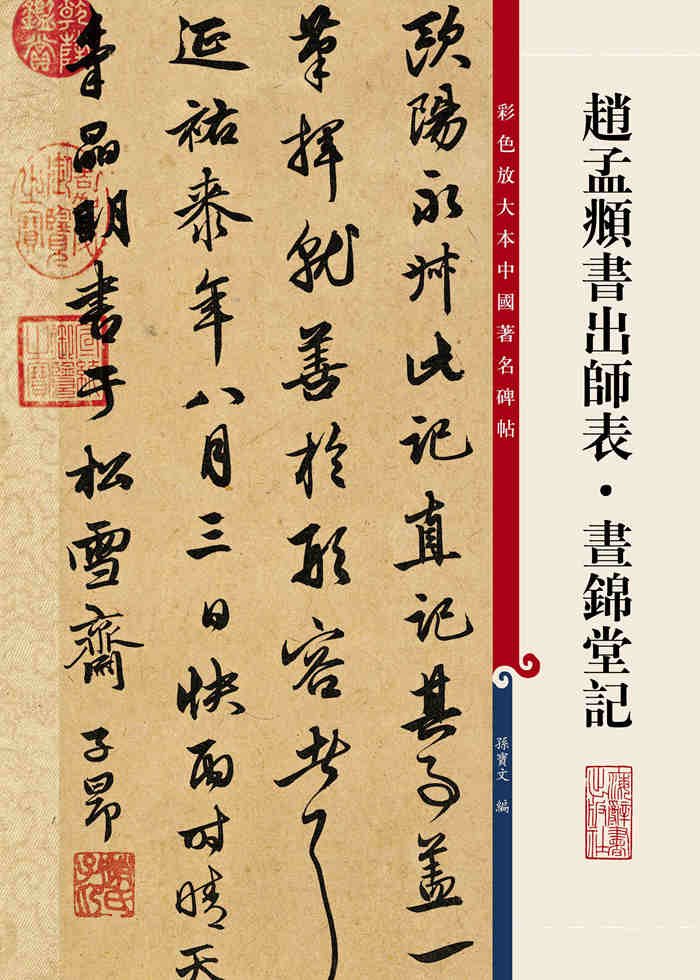 趙孟頫書出師表・晝錦堂記
彩色放大本中國著名碑帖
孫寶文 編
歐陽永叔此記直記其事蓋一
筆揮就善於形容者
延祐桼年八月三日快雨時晴天
青晶明書于松雪齋
子昂
趙氏子昂
乾隆鑑賞